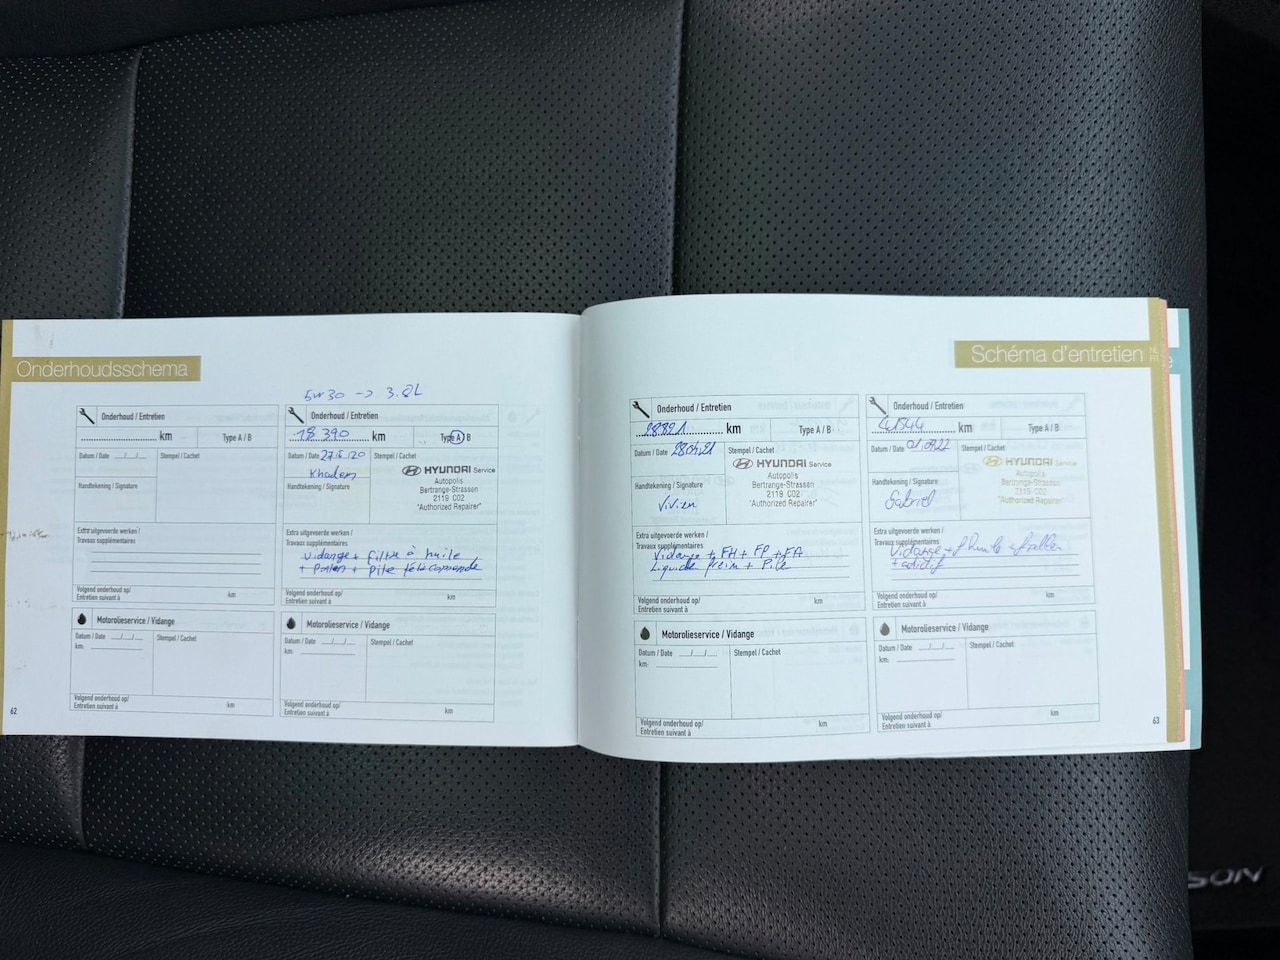 Onderhoudsschema
Onderhoud / Entretien
km
Type A / B
Datum / Date _/_/_
Stempel / Cachet
Handtekening / Signature
Extra uitgevoerde werken /
Travaux supplémentaires
Volgend onderhoud op/
Entretien suivant à
km
Motorolieservice / Vidange
Datum / Date _/_/_
Stempel / Cachet
km:
Volgend onderhoud op/
Entretien suivant à
km
62
5w30 -> 3.8L
Onderhoud / Entretien
18 390 km
Type A / B
Datum / Date
Stempel / Cachet
Khadem
Handtekening / Signature
HYUNDAI Service
Autopolis
Bertrange-Strassen
2119 C02
"Authorized Repairer"
Extra uitgevoerde werken /
Travaux supplémentaires
Vidange + Filtre à huile
+ Pollen + Pile télécomande
Volgend onderhoud op/
Entretien suivant à
km
Motorolieservice / Vidange
Datum / Date _/_/_
Stempel / Cachet
km:
Volgend onderhoud op/
Entretien suivant à
km
Schéma d'entretien
Onderhoud / Entretien
28821 km
Type A / B
Datum / Date 280421
Stempel / Cachet
HYUNDAI Service
Autopolis
Bertrange-Strassen
2119 C02
"Authorized Repairer"
Handtekening / Signature
Vivien
Extra uitgevoerde werken /
Travaux supplémentaires
Vidange + FH + FP + FA
Liquide frein + Pile
Volgend onderhoud op/
Entretien suivant à
km
Motorolieservice / Vidange
Datum / Date _/_/_
Stempel / Cachet
km:
Volgend onderhoud op/
Entretien suivant à
km
Onderhoud / Entretien
41544 km
Type A / B
Datum / Date
Stempel / Cachet
HYUNDAI Service
Autopolis
Bertrange-Strassen
2119 C02
"Authorized Repairer"
Handtekening / Signature
Gabriel
Extra uitgevoerde werken /
Travaux supplémentaires
Vidange + f huile
+ aditif
Volgend onderhoud op/
Entretien suivant à
km
Motorolieservice / Vidange
Datum / Date _/_/_
Stempel / Cachet
km:
Volgend onderhoud op/
Entretien suivant à
km
63
SON